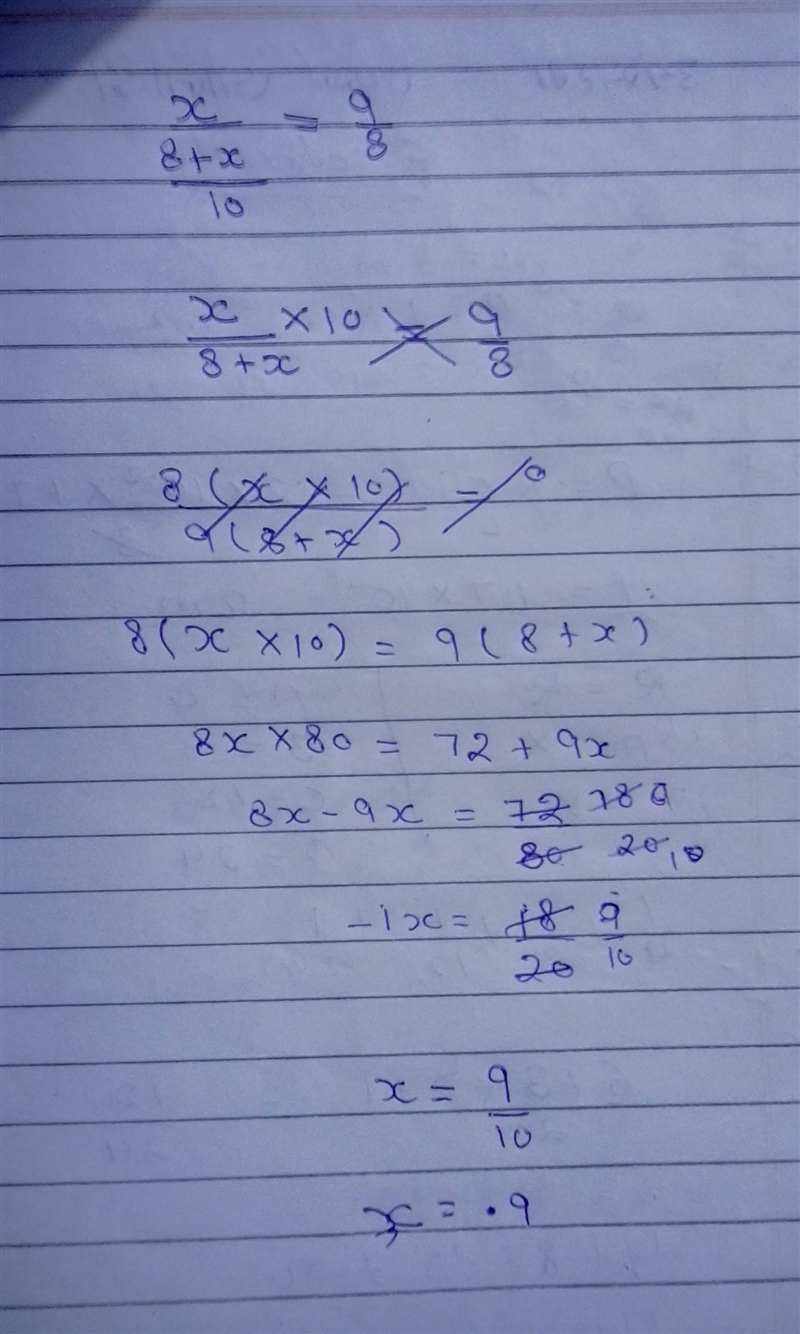 x/(8+x)/10 = 9/8
x/(8+x) × 10 = 9/8
8(x × 10)/9(8+x) = 0
8(x × 10) = 9(8+x)
8x × 80 = 72 + 9x
8x - 9x = 72/80 18/20
-1x = 18/20 9/10
x = 9/10
x = .9